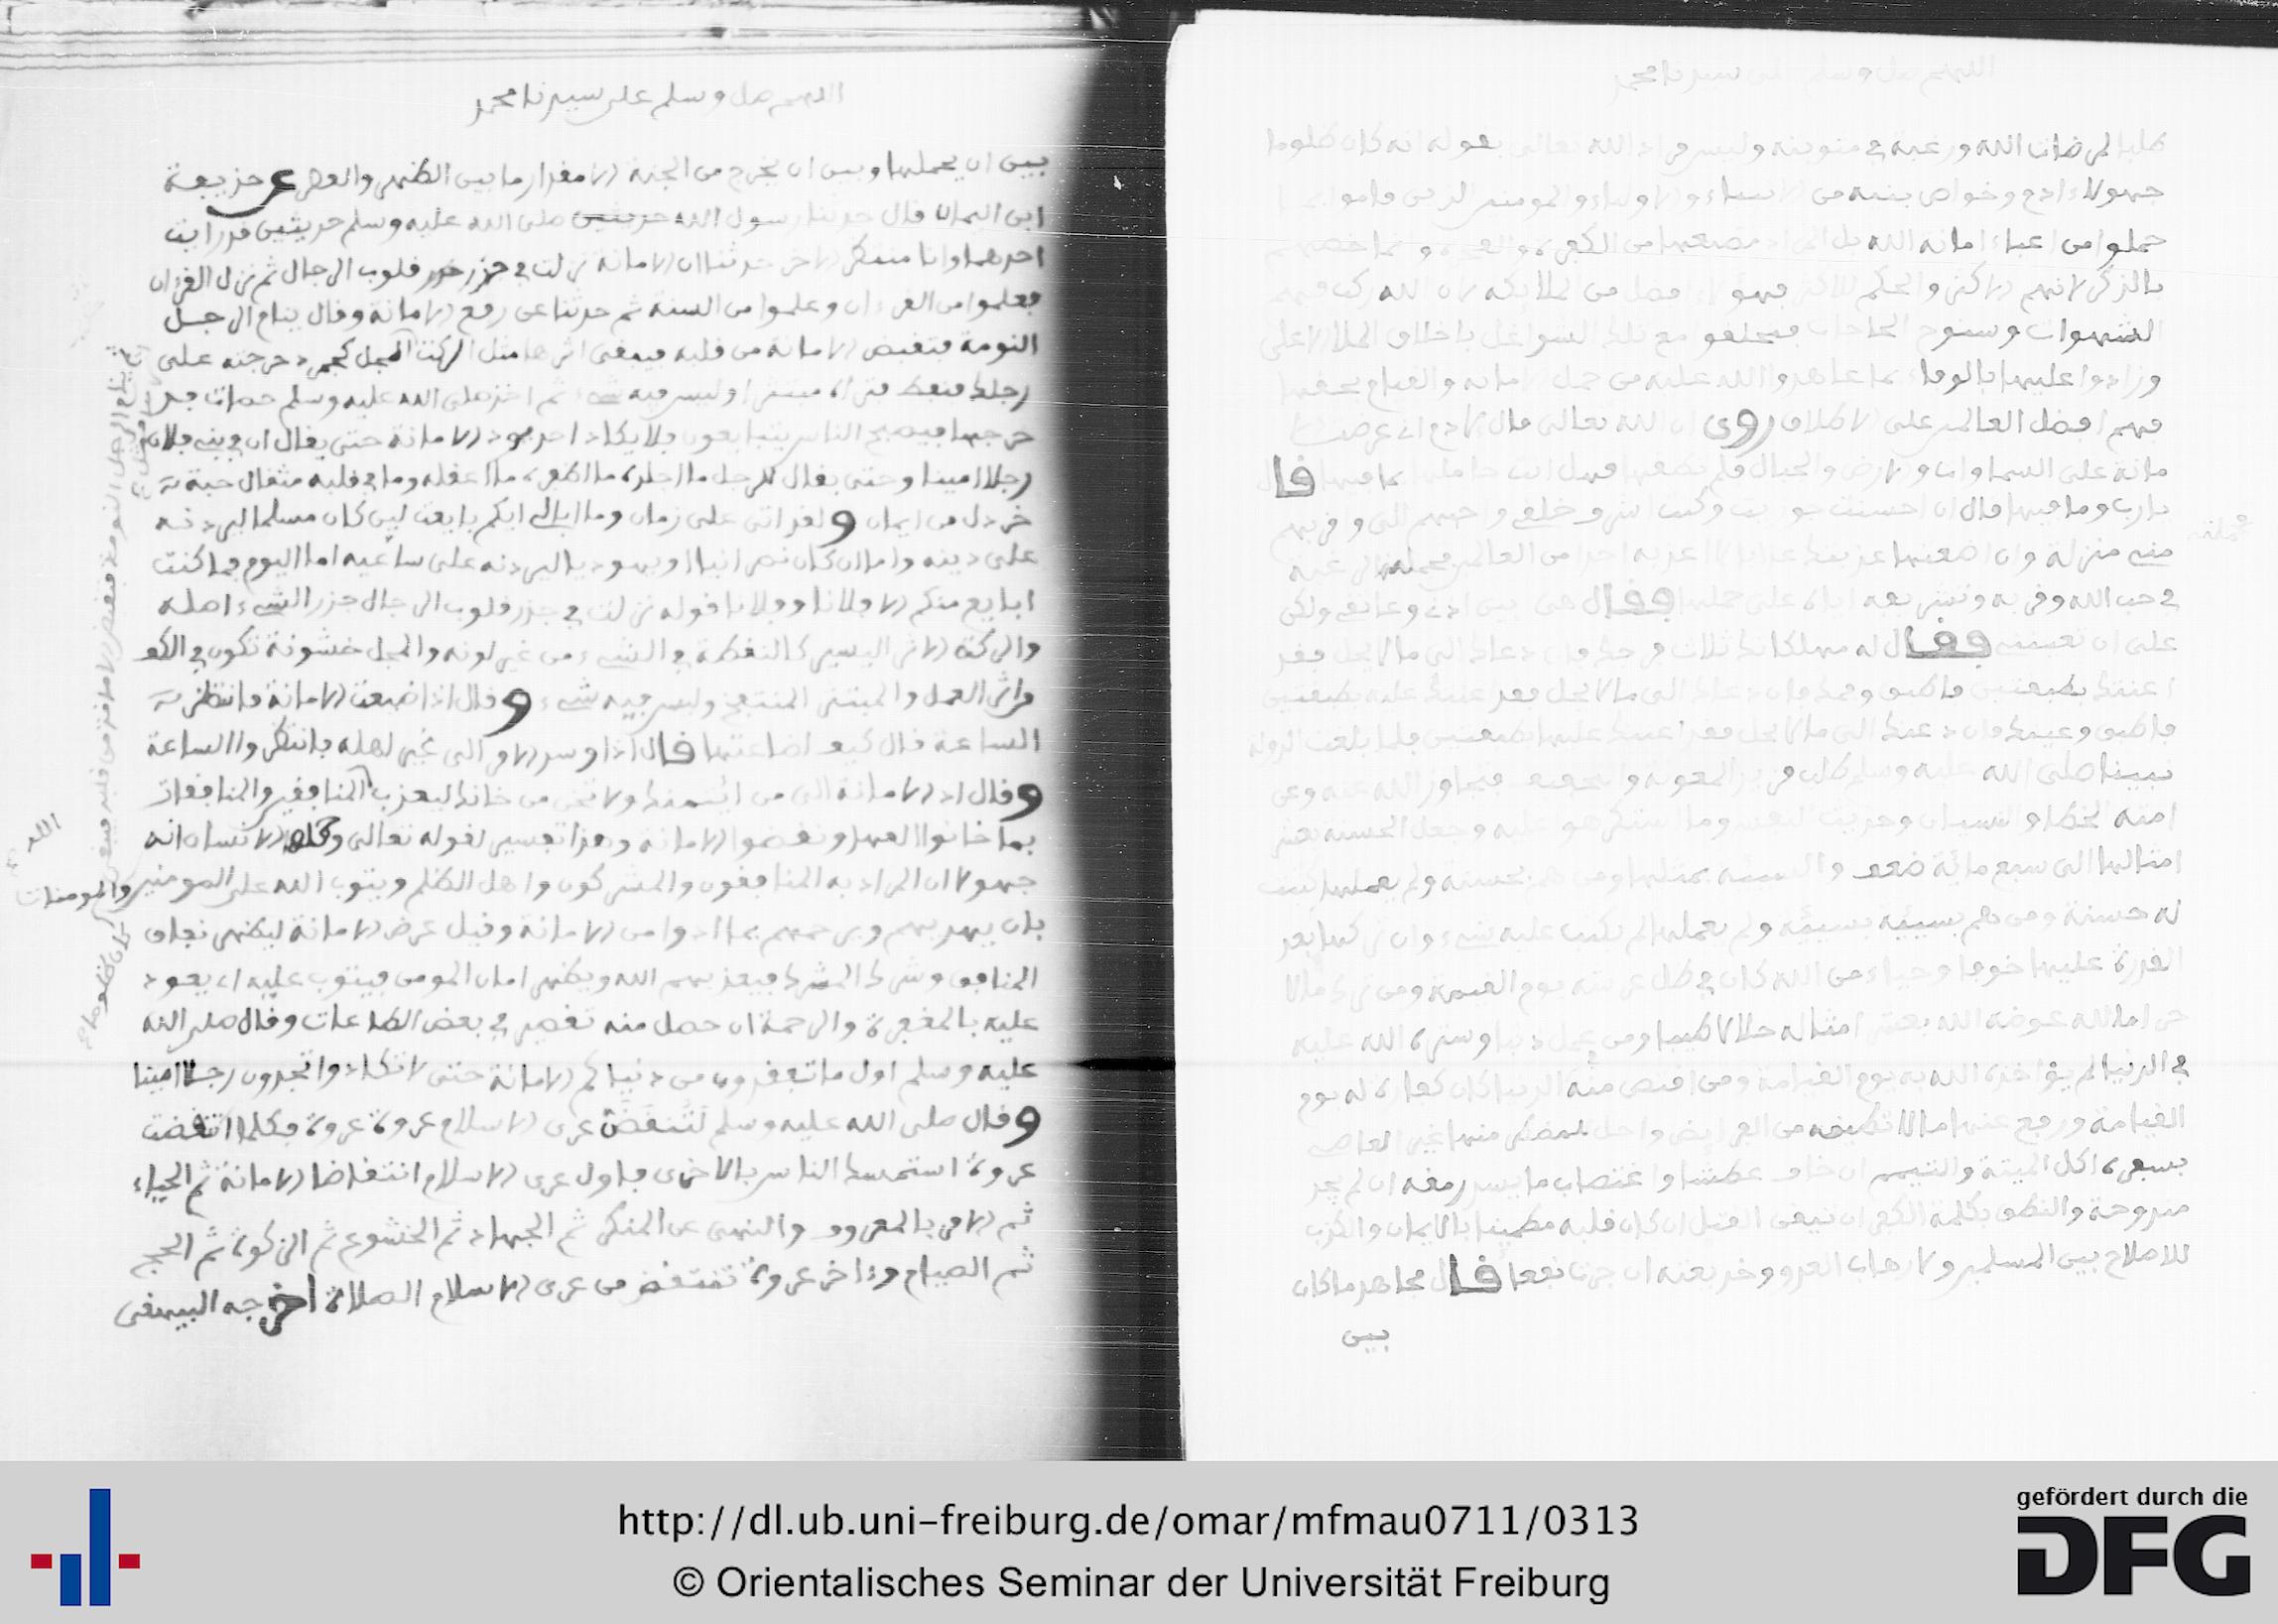 اللهم صل وسلم على سيدنا محمد
طلبا لمرضات الله ورغبة في مثوبته وليس مراد الله تعالى بقوله انه كان ظلوما
جهولا ادم وخواص بنيه من الانبياء والاولياء والمومنين الذين قاموا بما
حملوا من اعباء امانة الله بل المراد مضيعها من الكفرة
بالذكر لانهم الاكثر والحكم للاكثر فهؤلاء افضل من الملايكة لان الله ركب فيهم
الشهوات وسنوح الحاجات فتخلقوا مع تلك الشواغل باخلاق الملا الاعلى
وزادوا عليها بالوفاء بما عاهدوا الله عليه من حمل الامانة والقيام بحقها
فهم افضل العالمين على الاطلاق روى ان الله تعالى قال لادم اني عرضت
امانة على السماوات والارض والجبال فلم تطقها فهل انت حاملها بما فيها قال
يارب وما فيها قال ان احسنت
مني منزلة وان اضعتها عذبتك عذابا لا اعذبه احدا من العالمين فحملها رغبة
في حب الله وقربه وتشريفه اياه على حملها فقال هي بين اذني وعاتقي ولكن
على ان تعينني فقال له مهلكاتك ثلاث فرجك فان دعاك الى ما لا يحل فقد
اعنتك بطبقتين فاطبق وفمك فان دعاك الى ما لا يحل فقد اعنتك عليه بطبقتين
فاطبق وعينك فان دعتك الى ما لا يحل فقد اعنتك عليها بطبقتين فلما بلغت الدولة
نبينا صلى الله عليه وسلم طلب مزيد المعونة والتخفيف فتجاوز الله عنه وعن
امته الخطا والنسيان وحديث النفس وما استكرهوا عليه وجعل الحسنة بعشر
امثالها الى سبع مائة ضعف والسيئة بمثلها ومن هم بحسنة ولم يعملها كتبت
له حسنة ومن هم بسيئة ولم يعملها لم تكتب عليه شيء وان تركها بعد
القدرة عليها خوفا وحياء من الله كان في ظل عرشه يوم القيمة ومن ترك مالا
حراما لله عوضه الله بعشر امثاله حلالا طيبا ومن عمل ذنبا وستره الله عليه
في الدنيا لم يؤاخذه الله به يوم القيامة ومن اقتص منه في الدنيا كان كفارة له يوم
القيامة ورفع عنها ما لا تطيقه من الفرايض واحل للمضطر منها غير العاصي
بسفره اكل الميتة والتيمم ان خاف عطشا واغتصاب ما يسد رمقه ان لم يجد
مندوحة والنطق بكلمة الكفر ان تيقن القتل ان كان قلبه مطمينا بالايمان والكذب
للاصلاح بين المسلمين ولارهاب العدو وخديعته ان جرت نفعا قال مجاهد ما كان
بين
اللهم صل وسلم على سيدنا محمد
بين ان يحملها وبين ان يخرج من الجنة الا مقدار ما بين الظهر والعصر عن حذيفة
ابن اليمان قال حدثنا رسول الله حديثين صلى الله عليه وسلم حديثين قد رايت
احدهما وانا منتظر الاخر حدثنا ان الامانة نزلت في جذر قلوب الرجال ثم نزل القرءان
فعلموا من القرءان وعلموا من السنة ثم حدثنا عن رفع الامانة وقال ينام الرجل
النومة فتقبض الامانة من قلبه فيبقى اثرها مثل الوكت المجل كجمر دحرجته على
رجلك فنفط فتراه منتبرا وليس فيه شيء ثم اخذ صلى الله عليه وسلم حصات فد
حرجها فيصبح الناس يتبايعون فلا يكاد احد يود الامانة حتى يقال ان في بني فلان
رجلا امينا وحتى يقال للرجل ما اجلده ما اظرفه ما اعقله وما في قلبه مثقال حبة من
خردل من ايمان ولقد اتى على زمان وما ابالي ايكم بايعت لين كان مسلما ليردنه
على دينه واما ان كان نصرانيا او يهوديا ليردنه على ساعيه اما اليوم فما كنت
ابايع منكم الا فلانا وفلانا قوله نزلت في جذر قلوب الرجال جذر الشيء اصله
والوكت الاثر اليسير كالنقطة في الشيء من غير لونه والمجل خشونة تكون في الكف
من اثر العمل والمنتبر المنتفخ وليس فيه شيء وقال اذا ضيعت الامانة فانتظر
الساعة قال كيف اضاعتها قال اذا وسد الامر الى غير اهله فانتظروا الساعة
وقال اد الامانة الى من ائتمنك ولا تخن من خانك ليعذب الله المنافقين والمنافقات
بما خانوا العهد ونقضوا الامانة وهذا تفسير لقوله تعالى وحملها الانسان انه كان ظلوما
جهولا ان المراد به المنافقون والمشركون واهل الظلم ويتوب الله على المومنين والمومنات
بان يهديهم ويرحمهم بما ادوا من الامانة وقيل عرض الامانة ليظهر نفاق
المنافق وشرك المشرك فيعذبهم الله ويظهر امان المومن فيتوب عليه اي يعود
عليه بالمغفرة والرحمة ان حصل منه تقصير في بعض الطاعات وقال صلى الله
عليه وسلم اول ما تفقدون من دينكم الامانة حتى لا تكادوا تجدون رجلا امينا
وقال صلى الله عليه وسلم لتنقضن عرى الاسلام عروة عروة فكلما انتقضت
عروة استمسك الناس بالاخرى فاول عرى الاسلام انتقاضا الامانة ثم الحياء
ثم الامر بالمعروف والنهي عن المنكر ثم الجهاد ثم الخشوع ثم الزكوة ثم الحج
ثم الصيام وءاخر عروة تنتقض من عرى الاسلام الصلاة اخرجه البيهقي
http://dl.ub.uni-freiburg.de/omar/mfmau0711/0313
© Orientalisches Seminar der Universität Freiburg
gefördert durch die
DFG